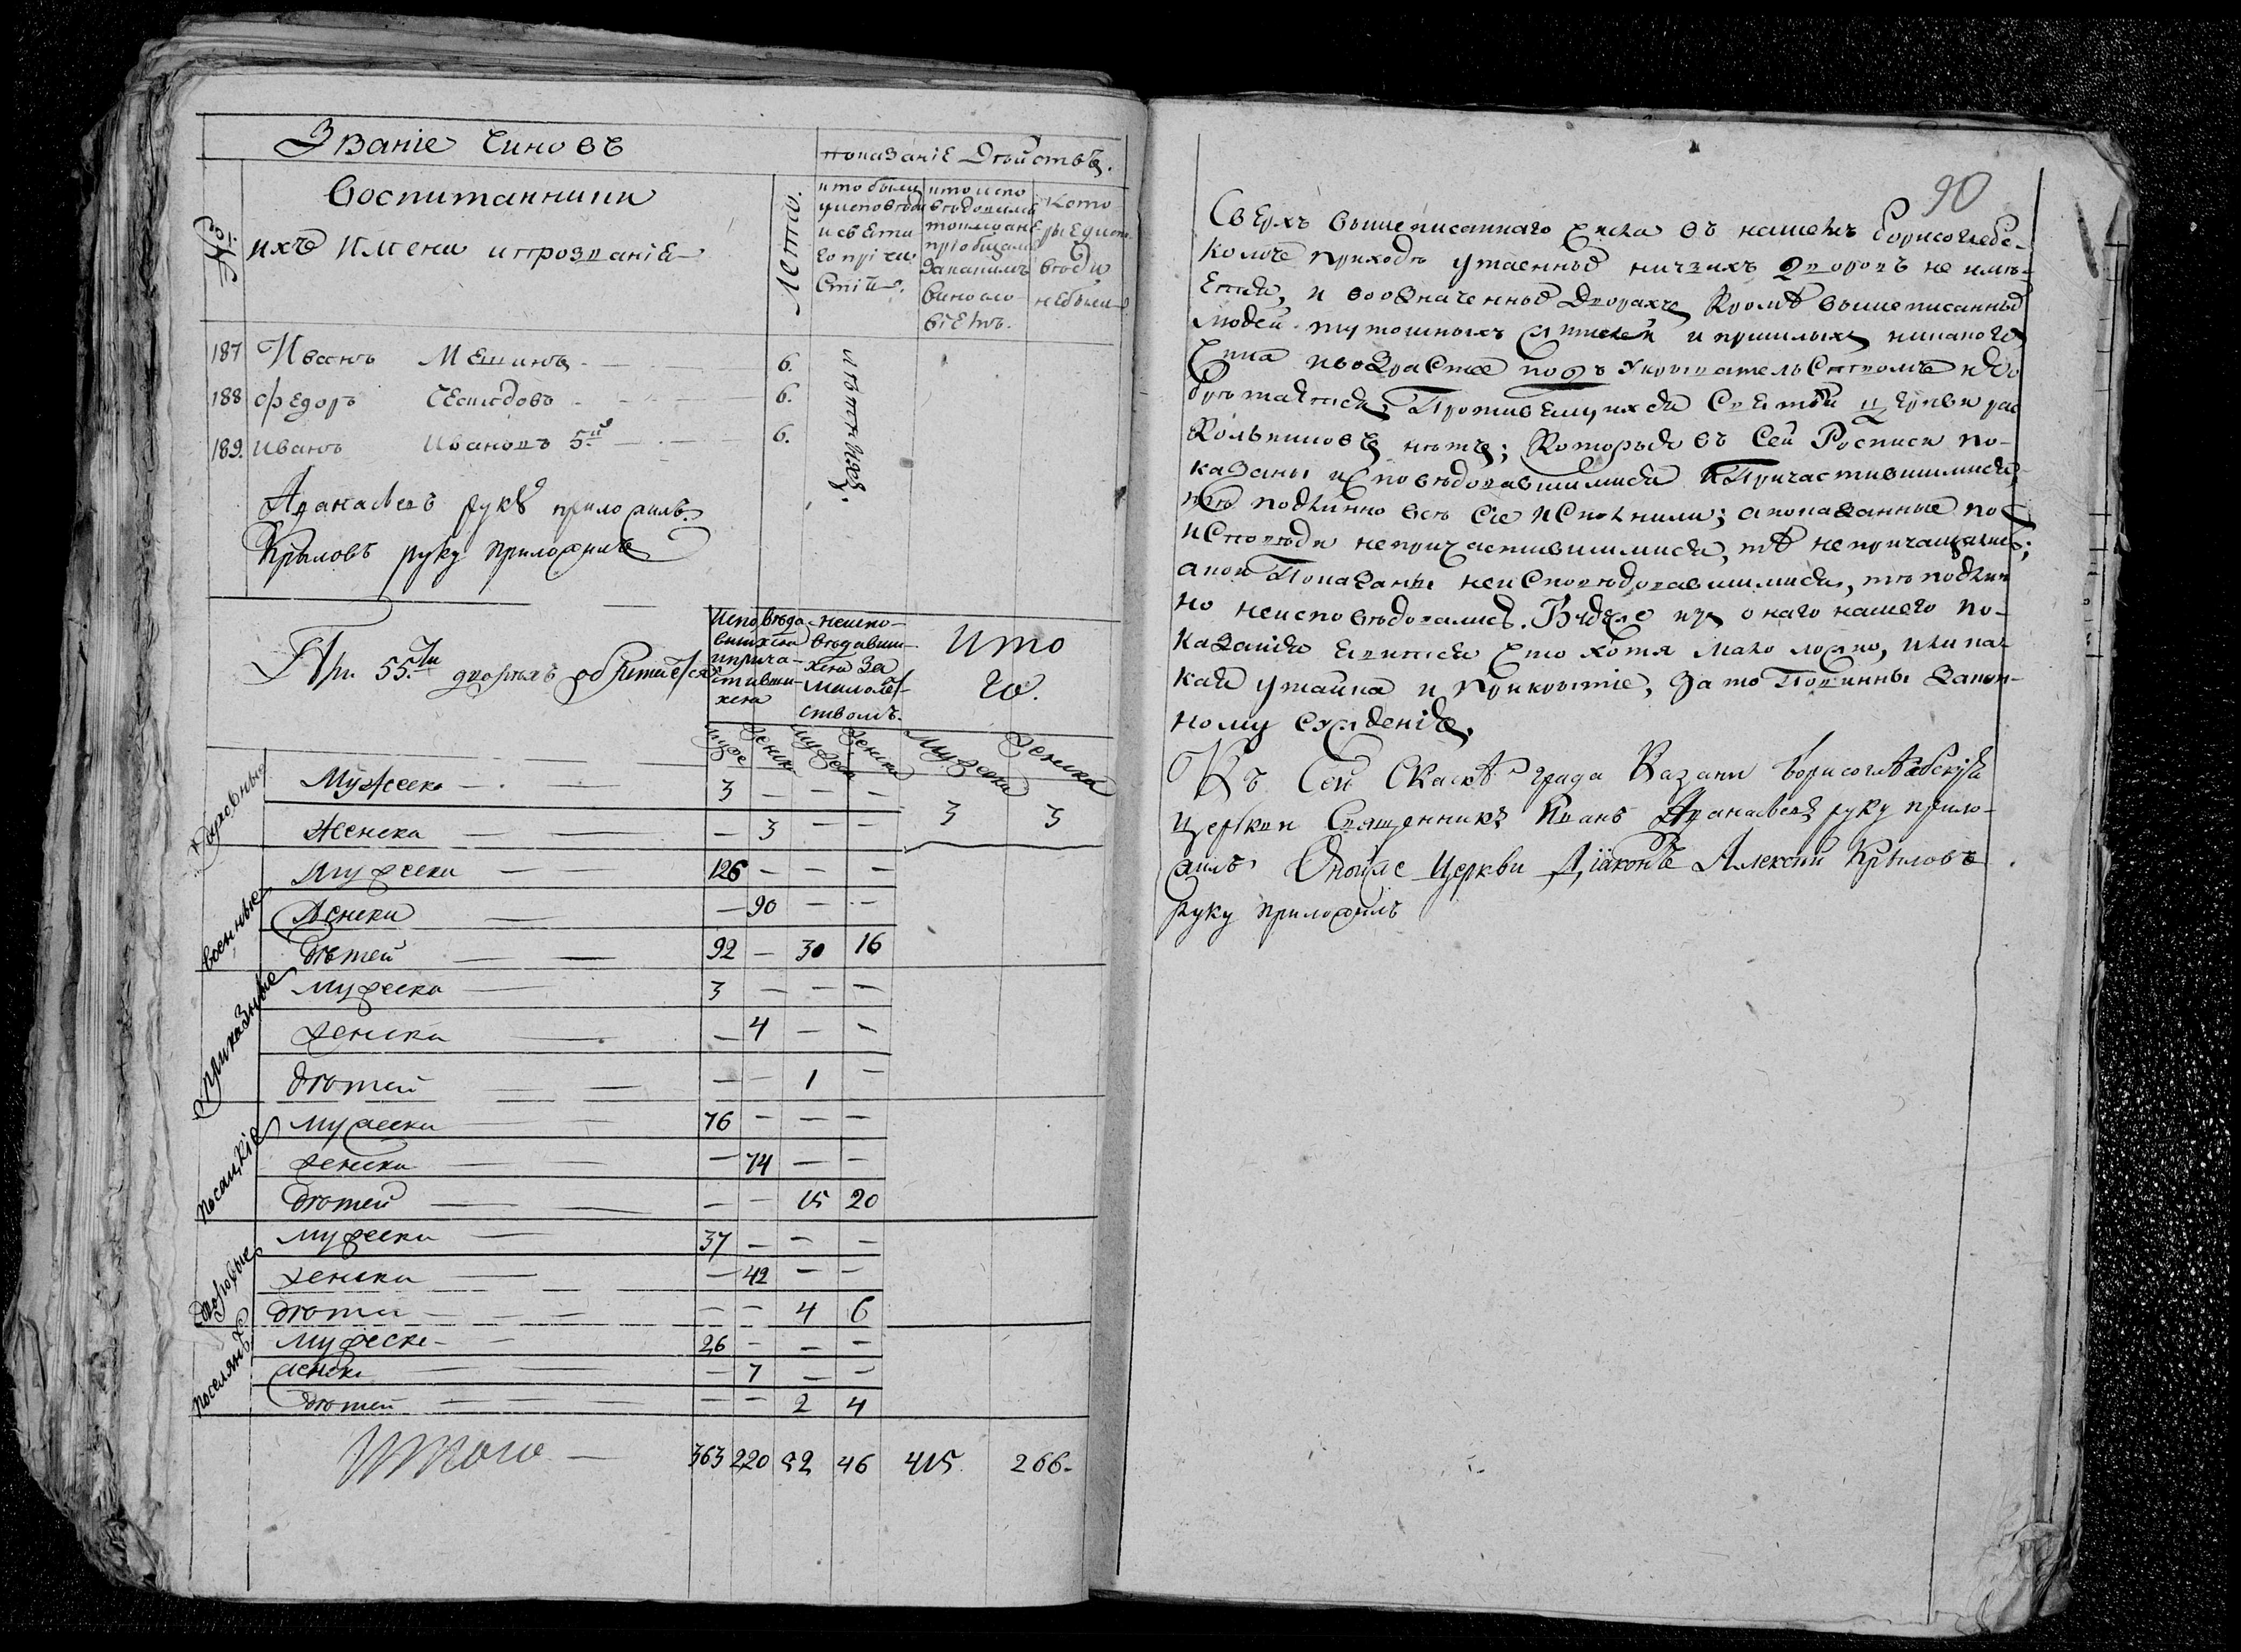 Званіе Чиновъ
показаніе Дѣйствъ.
№
Воспитанники
ихъ Имена и прозваніе
Лета.
кто были
у исповѣди
и свЕта
го причи
Стія.
кто испо
вѣдолися
токмо а не
пріобщал
за каким
вином
Кото
рыЕ у испо
вѣди
не были
187 Иванъ Мешинъ 6.
188 ФЕдоръ 6.
189. Иванъ Ивановъ 5й 6.
Афанасьевъ рукѣ приложилъ
Крыловъ руку приложилъ
Въ 55ти дворѣхъ обрѣтаеться
Исповѣда
вшихся
и прича-
стивши-
хся
неиспо-
вѣдавши-
хся за
малолѣт
ствомъ.
Ито
го.
Муже Женска Муже Женска Мужеска Женска
Духовные
Мужеска 3 — — —
Женска — 3 — — 3 3
Военные
Мужески 126 — — —
Женски — 90 — —
дѣтей 92 — 30 16
Приказные
Мужеска 3 — — —
Женска — 4 — —
дѣтей — — 1 —
Посацкіе
Мужески 76 — — —
Женски — 74 — —
дѣтей — — 15 20
дворовые
Мужески 37 — — —
Женски — 42 — —
дѣтей — — 4 6
Поселянъ
Мужеске 26 — — —
Женски — 7 — —
дѣтей — — 2 4
Итого — 363 220 52 46 415 266
90
Сверхъ вышеписаннаго числа въ нашемъ Борисоглебс-
комъ приходѣ утаенныхъ ничьихъ дворовъ не имѣ-
Ется, и во означенныхъ Дворахъ Кромѣ вышеписанныхъ
людей тутошныхъ жителей и пришлыхъ никакого
Чина и возраста подъ укрывательством не
; Противящихся Святой церкви рас
Кольниковъ нѣтъ; Которыя въ Сей Росписи по-
казаны исповѣдовавшимися и Причастившимися,
тѣ подлинно всѣ сіе исполнили; а показанные по
исповѣди не причастившимися, тѣ не причащались;
а кои Показаны неисповѣдовавшимися, тѣ подлин
но неисповѣдовались. Буде из онаго нашего по-
казанія явится Что хотя мало ложно, или ка-
кая утайка и прикрытіе, За то Повинны Закон-
ному сужденію.
Къ Сей Скаскѣ града Казани Борисоглѣбскія
церкви Священникъ Иванъ Афанасьевъ руку прило-
жилъ Оной же Церкви Діаконъ Алексѣй Крыловъ
руку приложилъ